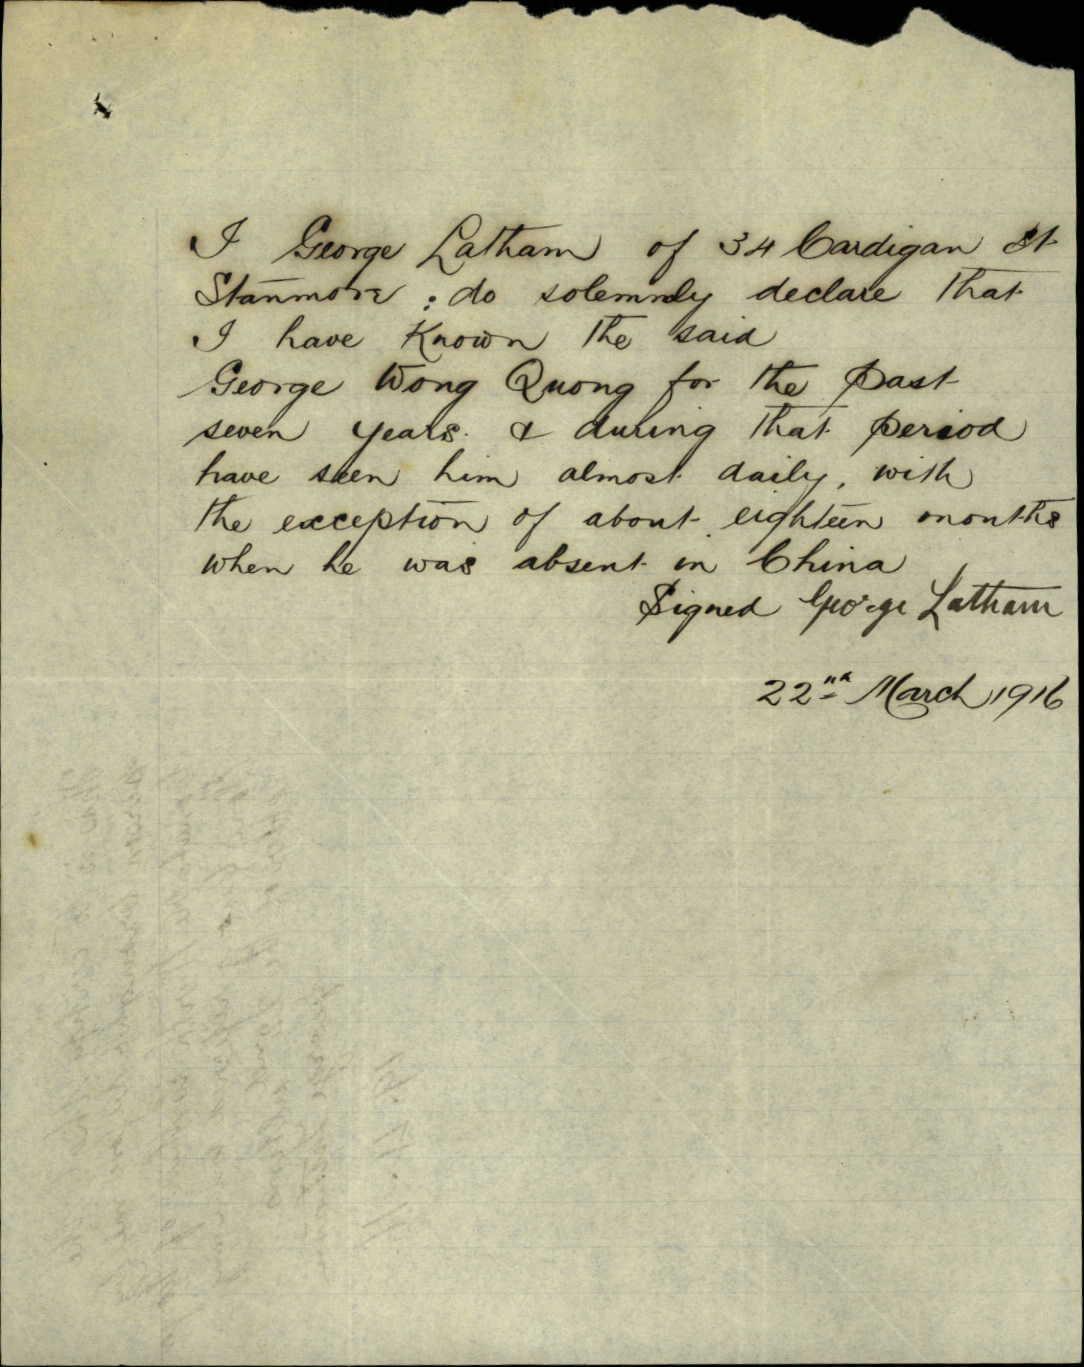 I George Latham of 34 Cardigan St
Stanmore : do solemnly declare that
I have Known the said
George Wong Quong for the Past
seven years. & during that Period
have seen him almost daily, with
the exception of about eighteen months
when he was absent in China
Signed George Latham
22nd March 1916